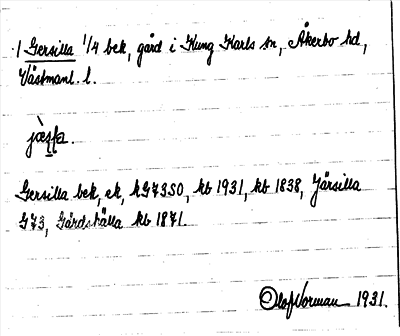 1 Gersilla 1/4 bek, gård i Kung Karls sn, Åkerbo hd,
Västmanl. l.
Gersilla bek, ek, kb 1931, kb 1838, Järsilla
G73, Gårdshälla kb 1871.
Olof Norman 1931.